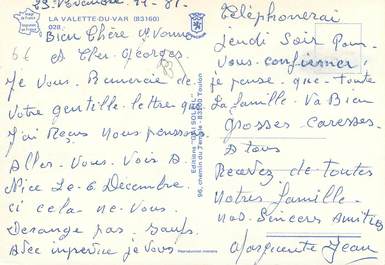 23 Novembre 19-81-
LA VALETTE-DU-VAR (83160)
028
Bien Chère Yvonne
et Cher Georges
Je Vous Remercie de
Votre gentille lettre que
J'ai Reçus Nous pensons
Aller-Vous-Voir A
Nice Le 6 Décembre.
si cela-ne-Vous-
Derange pas-saufs
Avec impertice je Vous
Editions "DU SOLEIL"
96, chemin du Temple - 83200 Toulon
Reproduction interdite
téléphonerai
jeudi Soir Pour-
Vous confirmer
je pense-que-toute
La famille-Va Bien
Grosses Caresses
A tous
Recevez de toutes
Notres famille-
Nos. Sincers Amitiés
Marguerite Jean